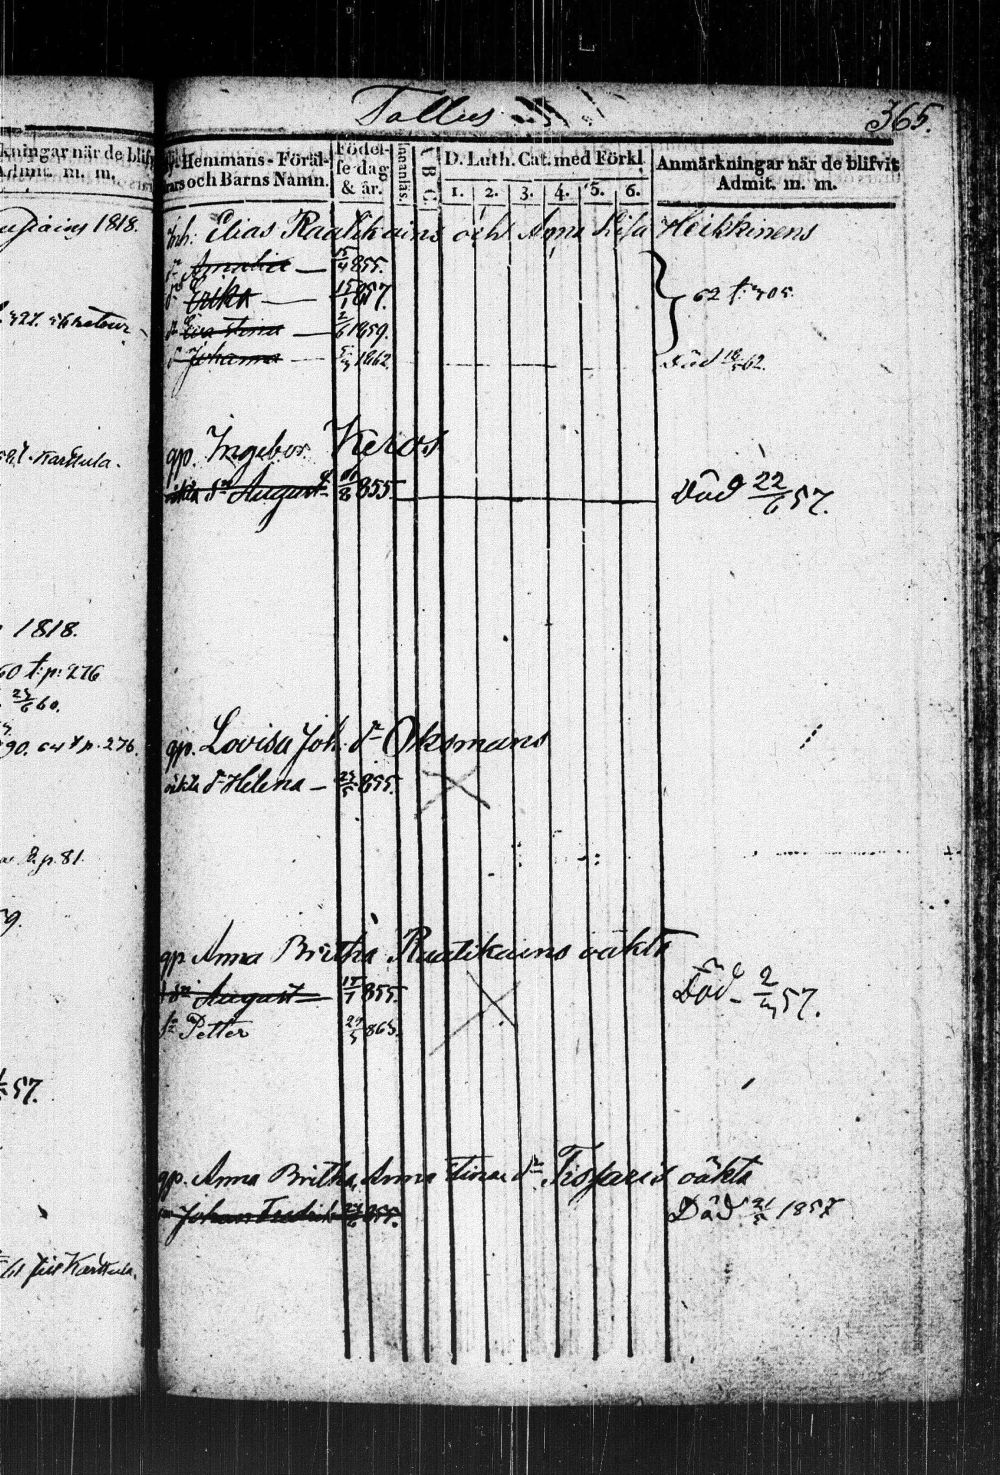 kningar när de blifv
Admit. m. m.
1818.
Karttula.
1818.
60 t. p. 276
23/6 60.
90. p. 276.
p. 81.
57.
till Karttula.
Tallus
365.
Hemmans-Föräl-
och Barns Namn.
Födel-
se dag
& år.
Innanläs.
A B C
D. Luth. Cat. med Förkl
1. 2. 3. 4. 5. 6.
Anmärkningar när de blifvit
Admit. m. m.
Inh: Elias Raatikains och Anna Lisa Heikkinens
dr Amalia — 15/4 855.
dr Erika — 15/1 857.
62 t. p. 305
dr Eva Stina — 2/6 1859.
Johanna — 1862.
Död 18/5 62.
gp. Ingebor Keros
oäkta sn August 8 855.
Död 22/6 57.
gp. Lovisa Joh. dr Oksmans
oäkta dr Helena — 23/5 855.
gp. Anna Britha Raatikains oäkta
sn August 15/7 855.
Död 2/3 57.
sn Petter 863.
gp. Anna Britha, Anna Stina dr oäkta
Johan Fredrik 855.
Död 21/5 1857